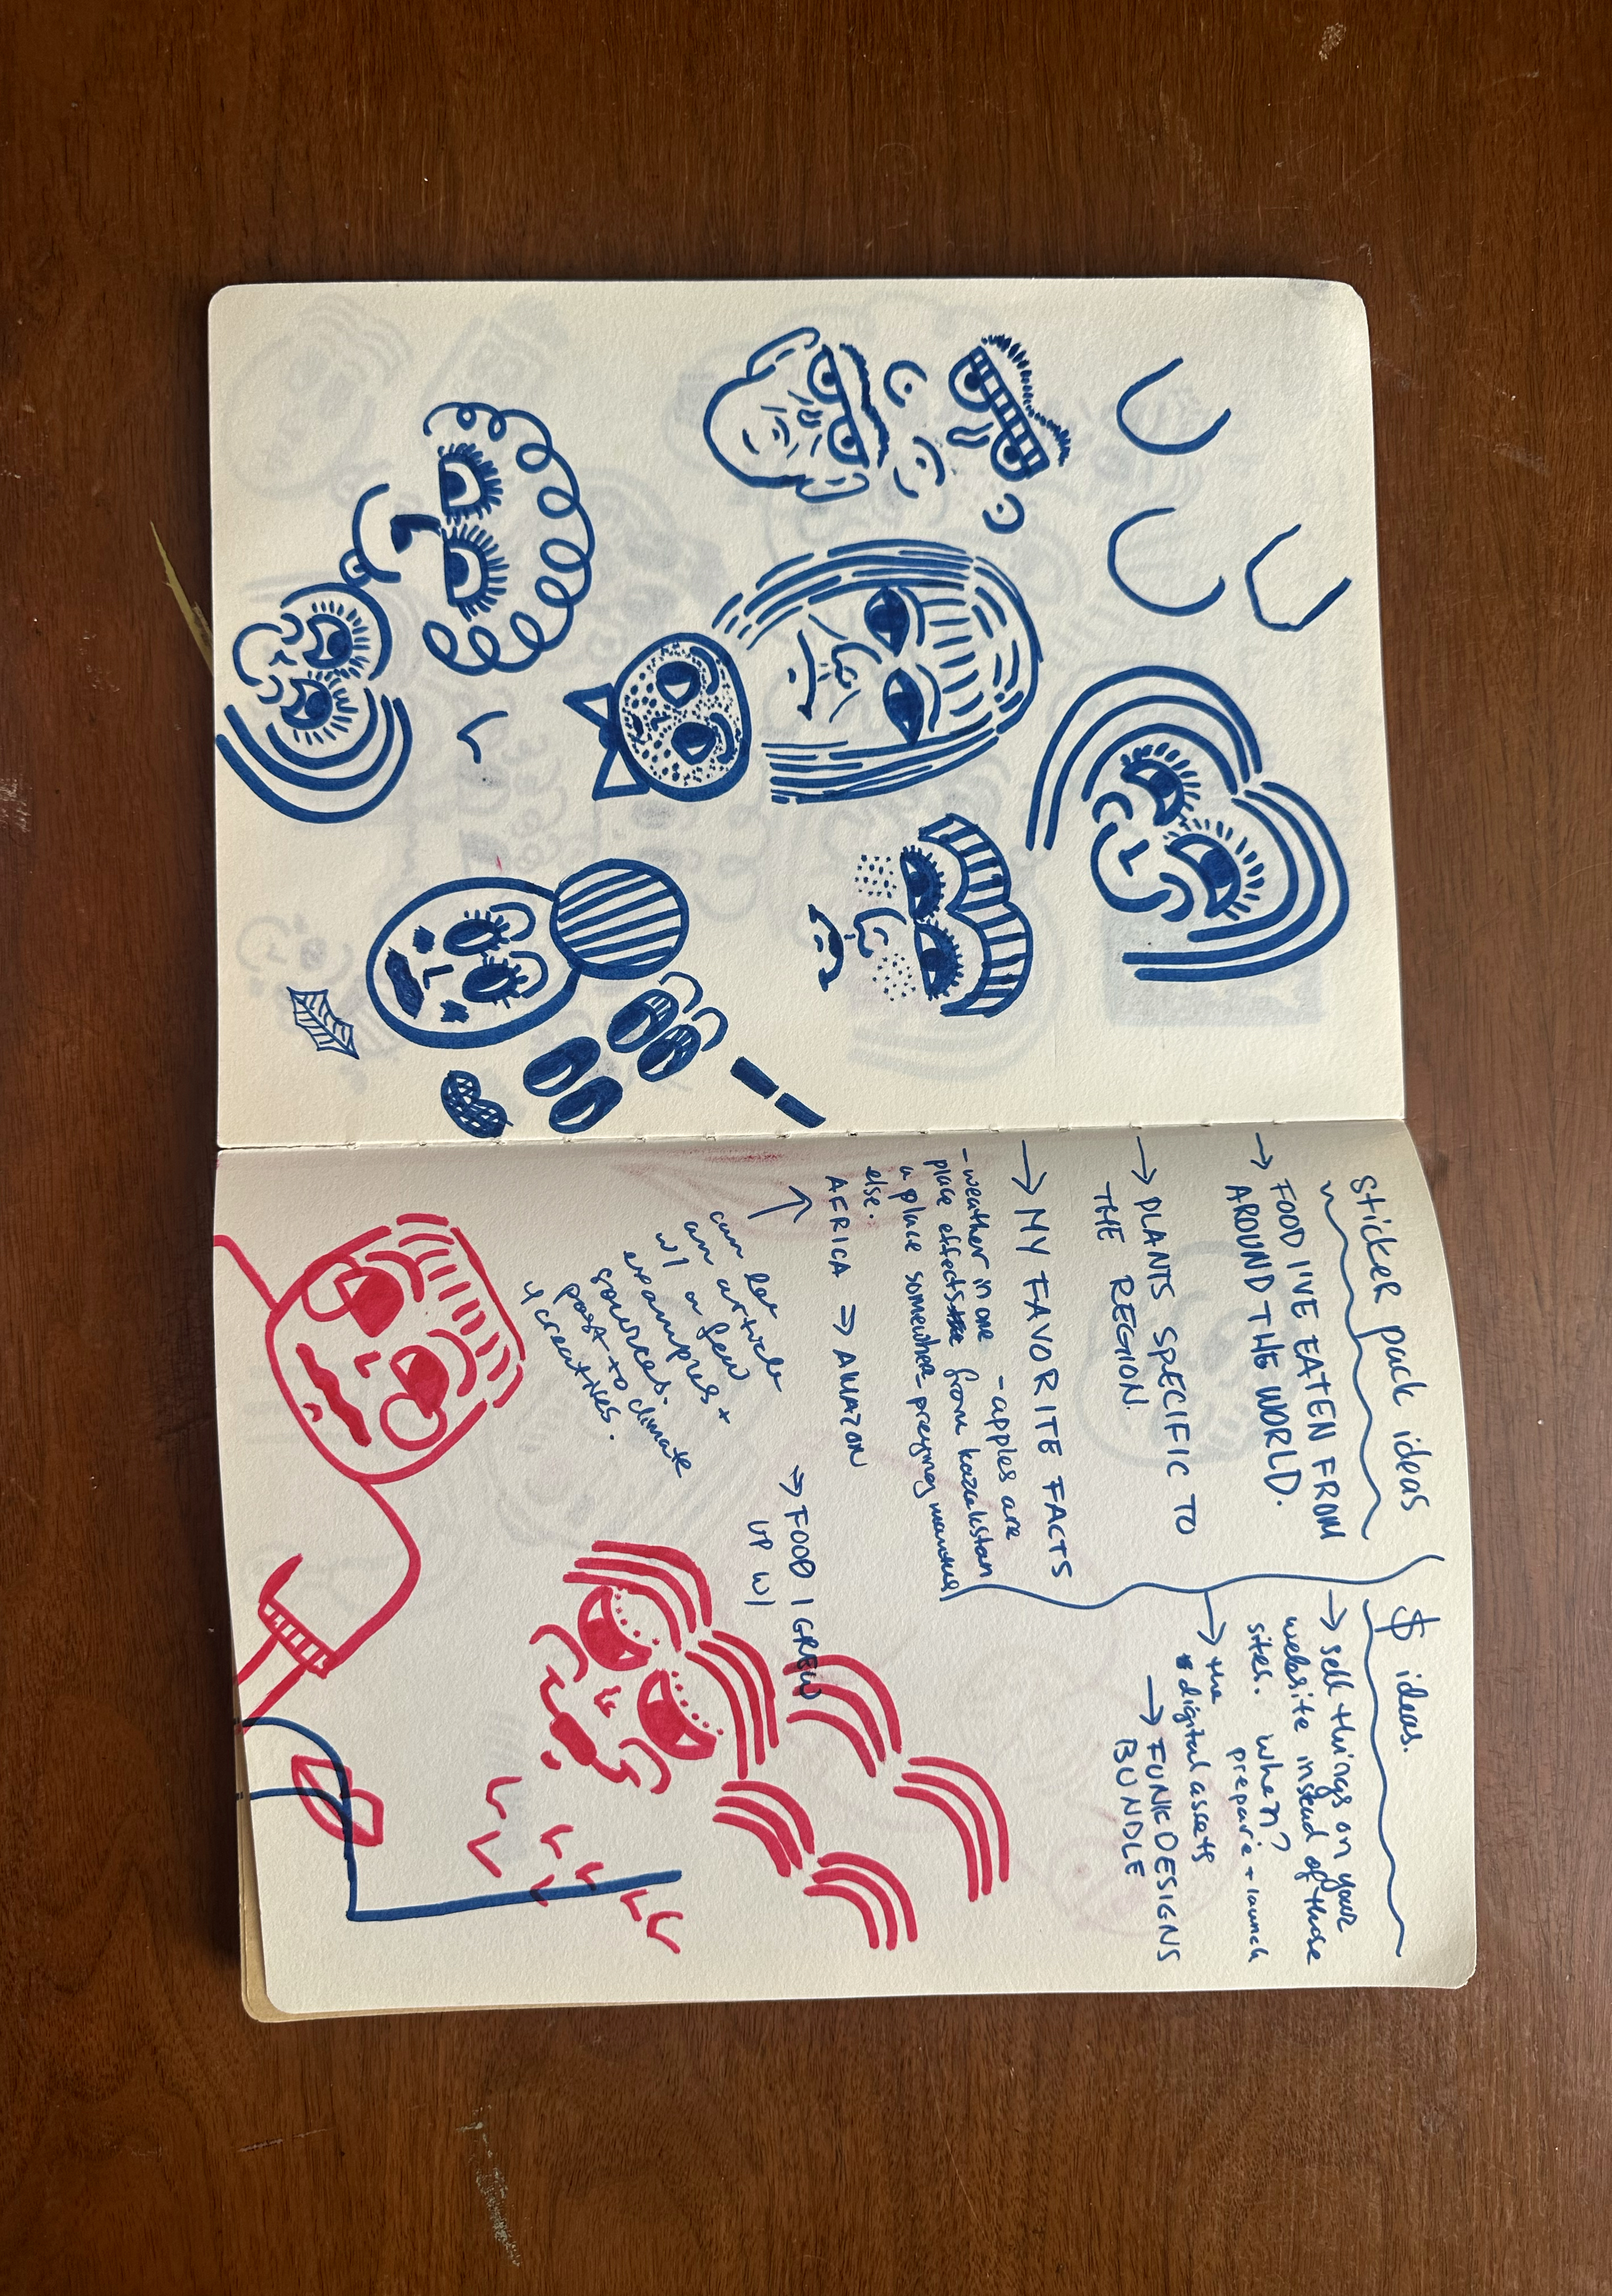 sticker pack ideas
→ FOOD I'VE EATEN FROM
AROUND THE WORLD.
→ PLANTS SPECIFIC TO
THE REGION.
→ MY FAVORITE FACTS
- weather in one
place effects
a place somewhere
else.
- apples are
from kazakstan
- preying mantus
AFRICA ⇒ AMAZON
can let
an article
w/ a few
examples +
sources.
post to climate
creatives.
→ FOOD I GREW
UP W/
$ ideas.
→ sell things on your
website instead of those
sites. when?
prepare + launch
→ the
digital assets
→ FUNK DESIGNS
BUNDLE